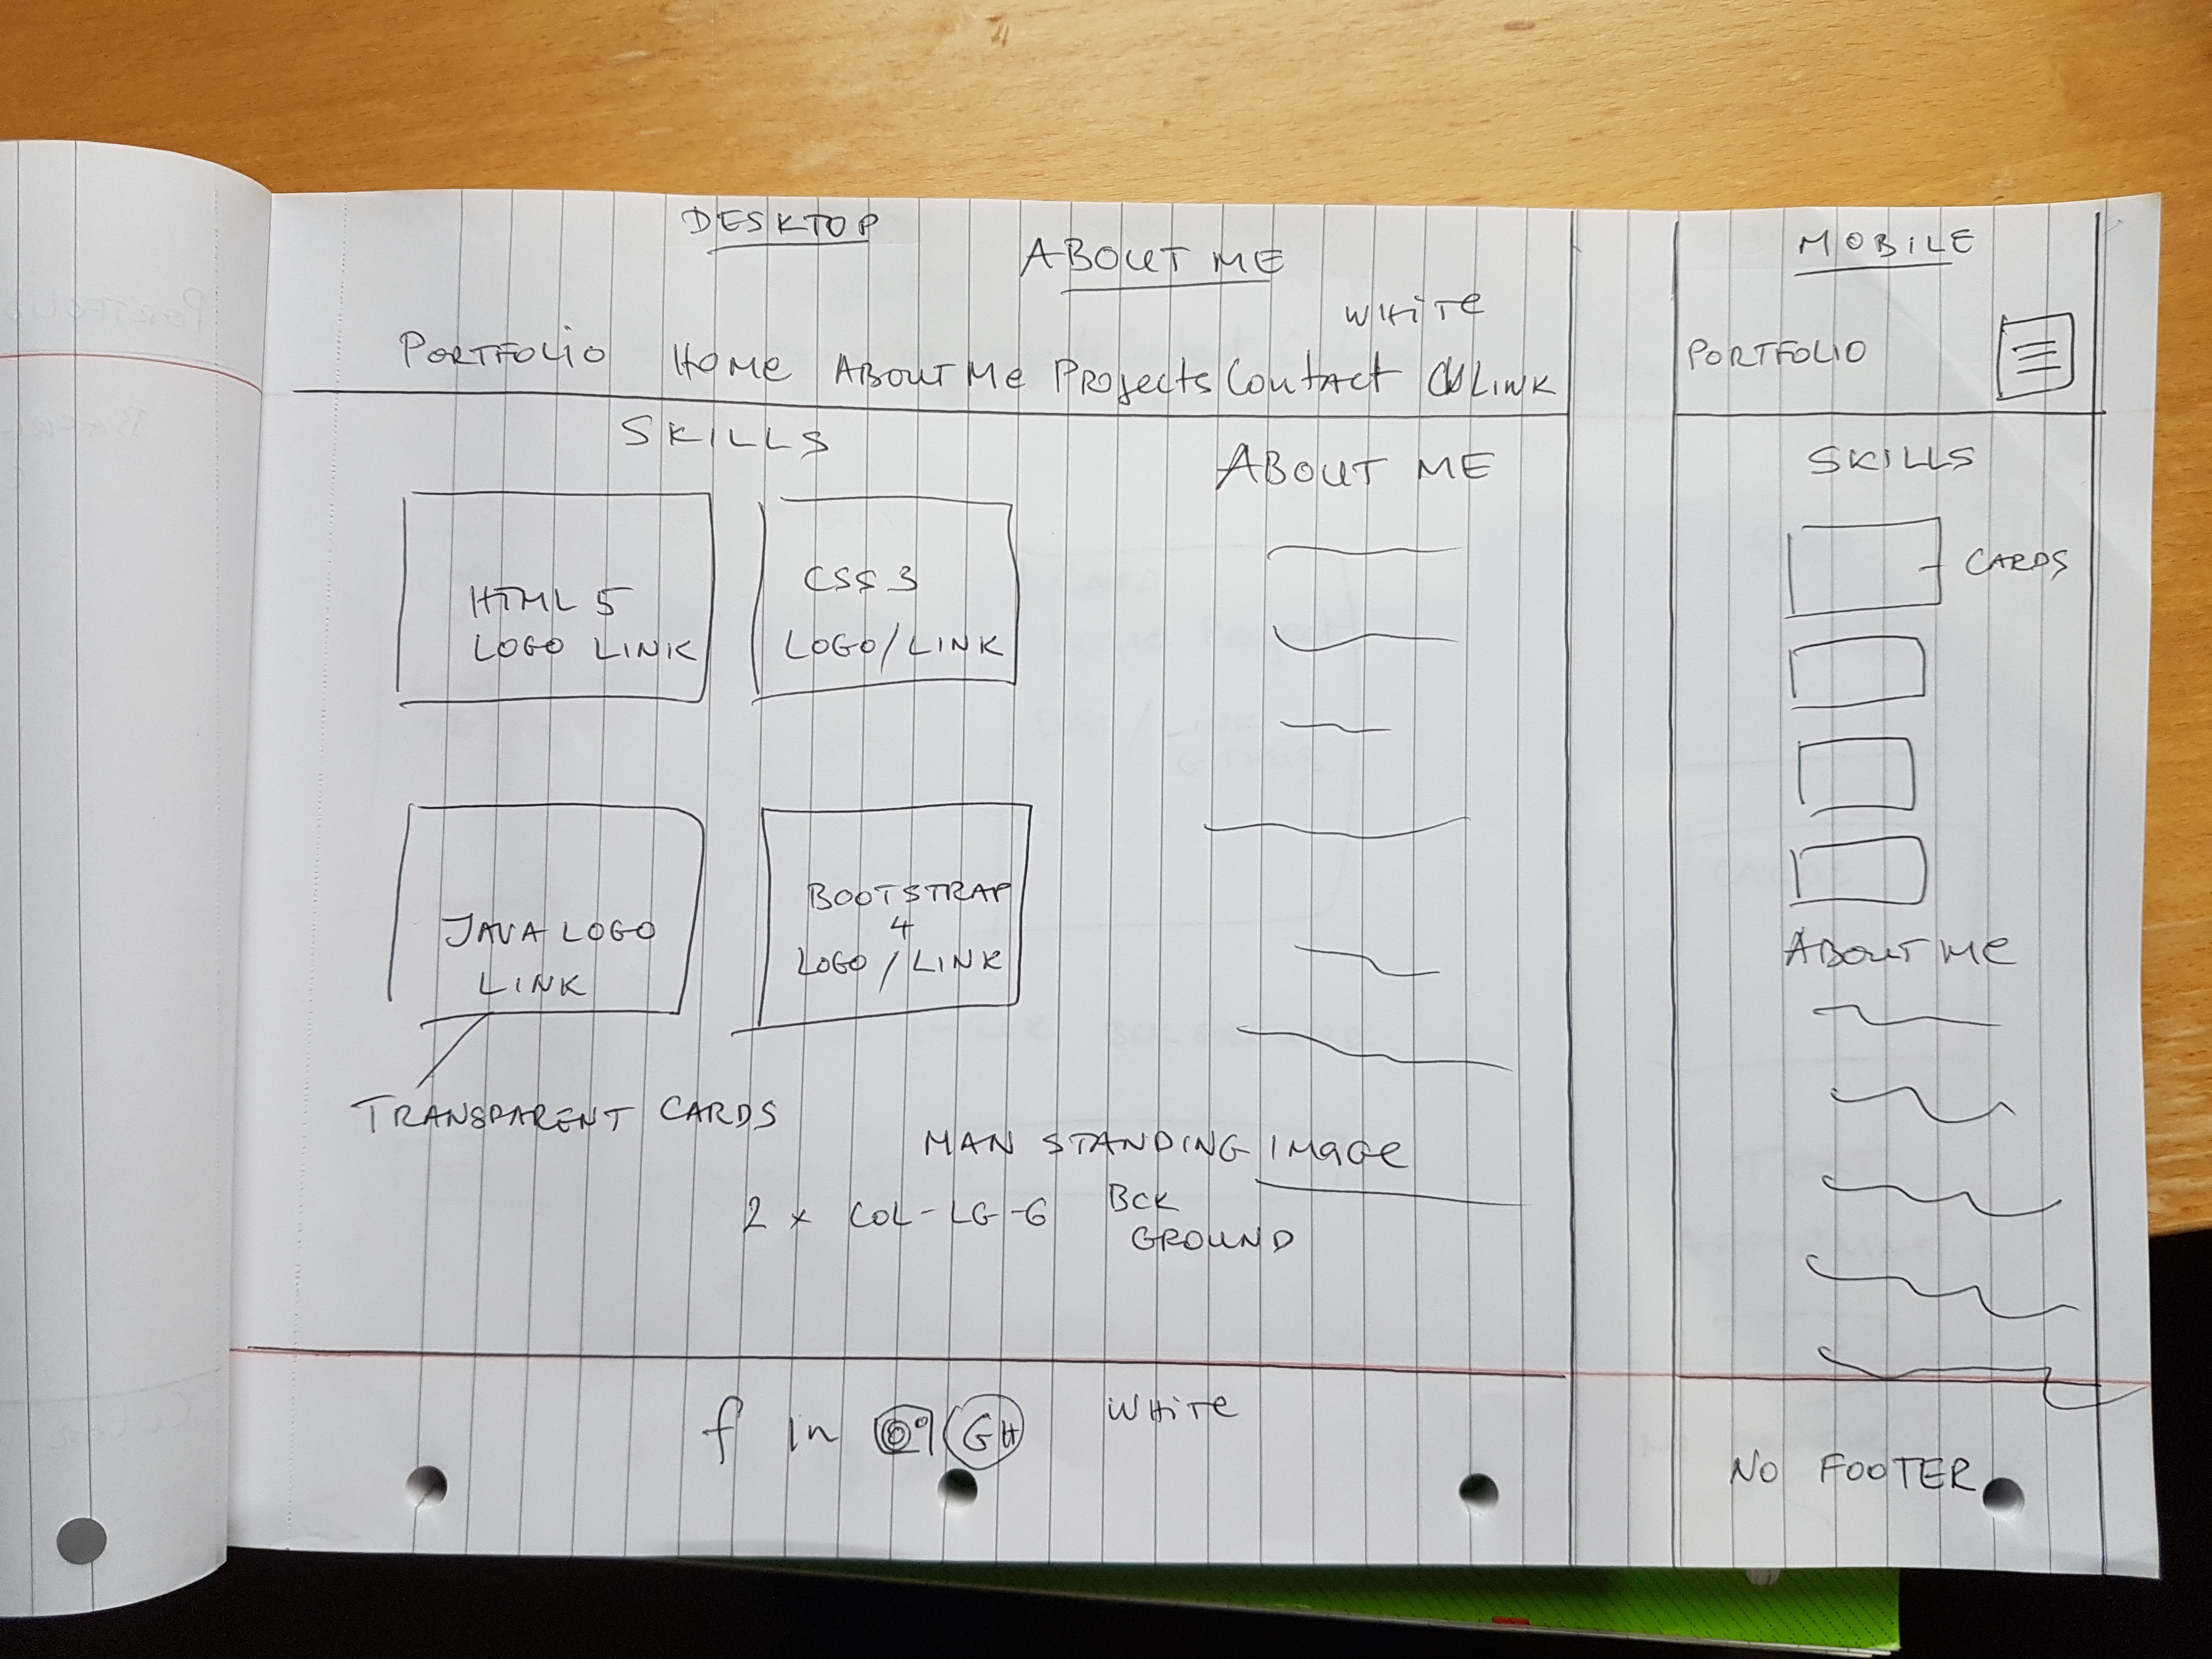 DESKTOP
ABOUT ME
WHITE
PORTFOLIO HOME ABOUT ME PROJECTS CONTACT LINK
SKILLS
ABOUT ME
HTML 5
LOGO LINK
CSS 3
LOGO/LINK
JAVA LOGO
LINK
BOOTSTRAP
4
LOGO/LINK
TRANSPARENT CARDS
MAN STANDING IMAGE
2 x COL-LG-6 BCK
GROUND
f in GH WHITE
MOBILE
PORTFOLIO
SKILLS
CARDS
ABOUT ME
NO FOOTER